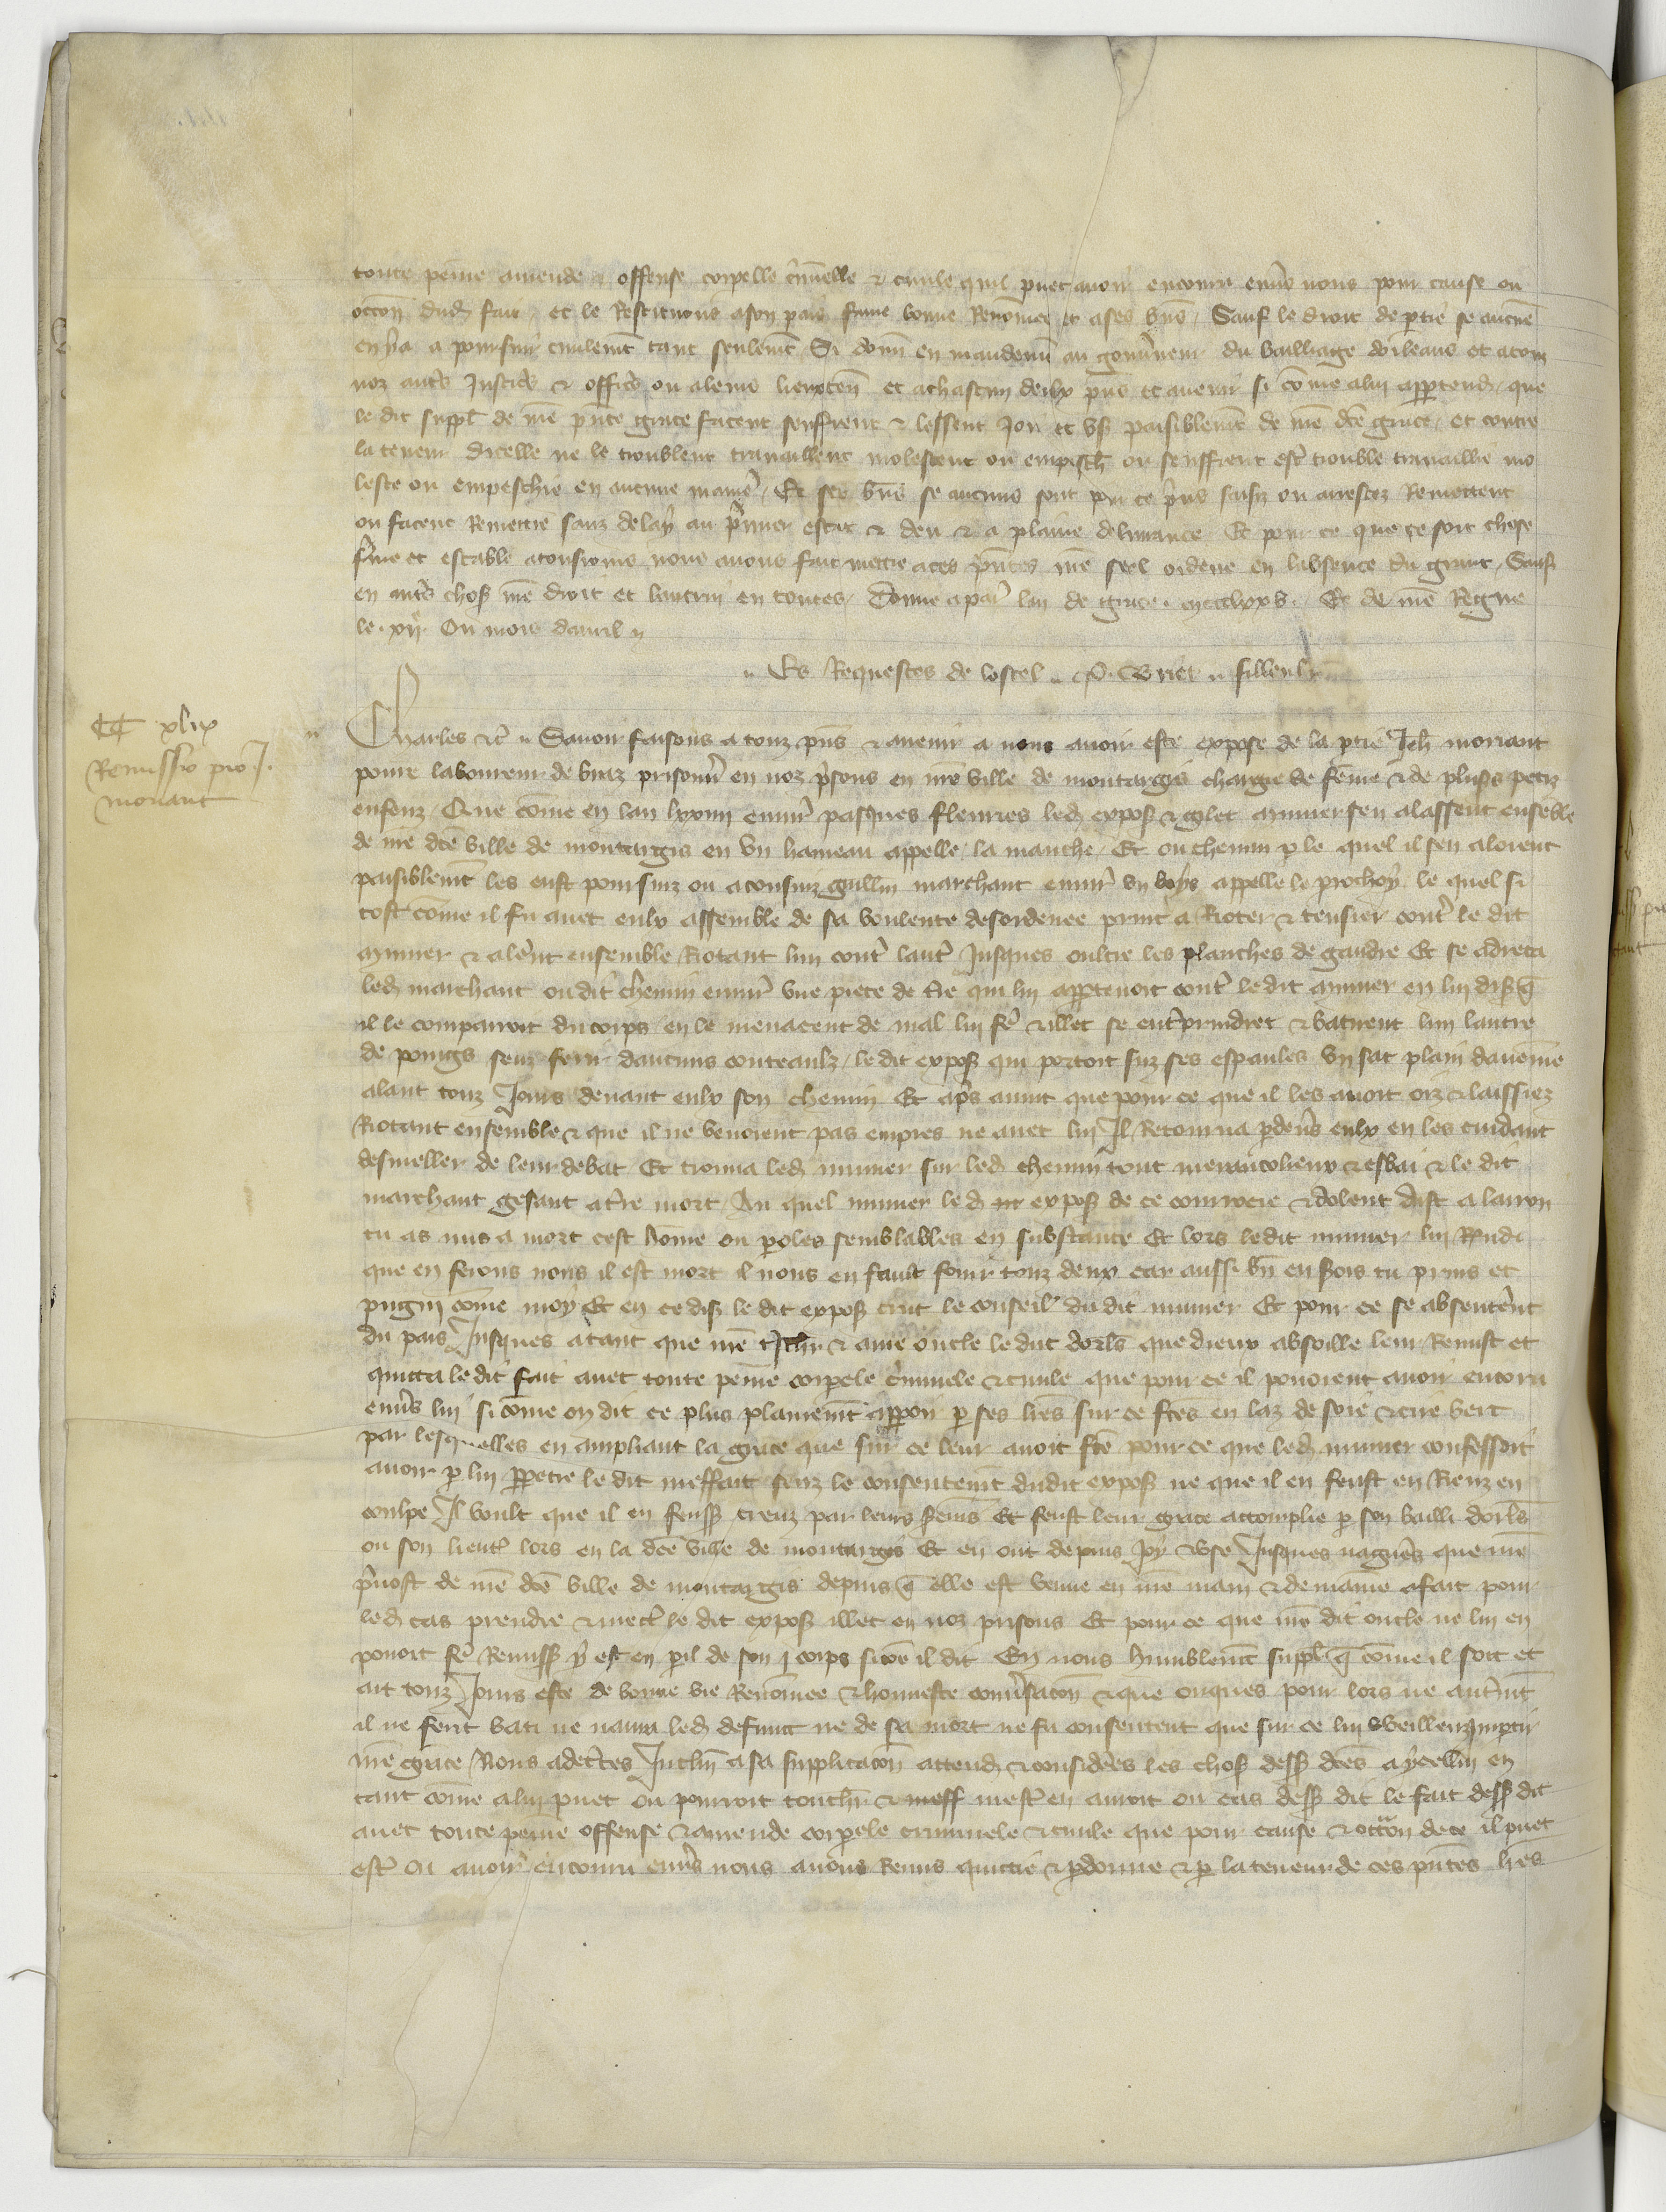 toute peine amende & offense corpelle c'minelle & civile quil puet avoir encouru env's nous pour cause ou
occon dud fait et le Restituons a son pais fame bonne Renomee et a ses bns Sauf le droit de ptie se aucune
en y a a poursuir civilemt tant seulemt Si donn en mandemt au gouv'neur du bailliage dorleans et a touz
noz aut's Justic's & offic's ou a leurs lieuxten et a chascun deulx pns et avenir si come a lui appertendra que
le dit suppl de nre pnte grace facent seuffrent & lessent Joir et user paisiblemt de nre dce grace et contre
la teneur dicelle ne le troublent travaillent molestent ou empesch ou seuffrent estre trouble travaillie mo
leste ou empeschie en aucune maniere Et ses bns se aucuns sont pour ce prins saisiz ou arrestez Remettent
ou facent Remettre sanz delay au p'mier estat & deu & a plaine delivrance Et pour ce que ce soit chose
f'me et estable a tousiours nous avons fait mettre a ces pntes nre seel ordene en labsence du grant Sauf
en aut's choses nre droit et lautrui en toutes Donne a par' lan de grace mccclxxv Et de nre Regne
le xij Ou mois davril
Es Requestes de lostel filleul
Charles &c Savoir faisons a touz pns & avenir a nous avoir este expose de la ptie Jeh moriant
povre laboureur de braz prisonn' en noz prisons en nre ville de montargis chargie de feme & de plus's petiz
enfenz Que come en lan lxxiiij envir' pasques fleuries led expos & gilet mumer sen alassent enseble
de nre dce ville de montargis en un hameau appelle la manche Et ou chemin p le quel il sen aloient
paisiblemt les eust poursuiz ou aconsuiz guillm marchant envir' un boys appelle le prochoy le quel si
tost come il fu avec eulx assemble de sa voulente desordenee print a Rioter & tensier cont' le dit
mumer & aler't ensemble Riotant lun cont' laut' Jusques oultre les planches de gaudre Et se adreca
led marchant ou dit chemin envir' une piece de t're qui lui appertenoit cont' le dit mumer en lui disant q
il le comparroit du corps en le menacent de mal lui fe' & illec se ent'prindret & batirent lun lautre
de poings senz ferir daucuns couteaulx le dit expos qui portoit suz ses espaules un sac plain daveine
alant touz Jours devant eulx son chemin Et ap's avint que pour ce que il les avoit oiz & laissiez
Riotant ensemble & que il ne venoient pas empres ne avec lui Il Retourna p devers eulx en les cuidant
desmeller de leur debat Et trouva led mumer sur led chemin tout merancolieux & esbai & le dit
marchant gesant a t're mort Au quel mumer led expos de ce courrocie & dolent dist a larron
tu as mis a mort cest home ou p'oles semblables en substance Et lors ledit mumer lui Rndi
que en ferons nous il est mort il nous en fault fouir touz deux car aussi bn en serois tu prins et
pugni come moy Et en ce dis le dit expos crut le conseil du dit mumer Et pour ce se absenter't
du pais Jusques a tant que nre tchier & ame oncle le duc dorls que dieux absoille leur Remist et
quicta le dit fait avec toute peine corpele c'minele & civile que pour ce il povoient avoir encoru
env's lui si come on dit ce plus plainemt apparoir p ses lres sur ce fces en laz de soie & cire vert
par lesquelles en ampliant la grace que sur ce leur avoit fce pour ce que led mumer confessoit
avoir p lui perpetre le dit meffait senz le consentemt dudit expos ne que il en feust en Rienz en
coulpe Il voult que il en feussent creuz par leurs seremens Et feust leur grace accomplie p son bailli dorls
ou son lieut lors en la dce ville de montargis Et en ont depuis Joy & use Jusques nagueres que nre
p'vost de nre dce ville de montargis depuis q elle est venue en nre main & demaine a fait pour
led cas prendre & mect' le dit expos illec en noz prisons Et pour ce que nre dit oncle ne lui en
povoit fe' Remiss y est en peril de son corps si come il dit En nous humblemt suppl q come il soit et
ait touz Jours este de bonne vie Renomee & honneste conv'sacon & que onques pour lors ne aut'mt
il ne ferit bati ne navra led defunct ne de sa mort ne fu consentent que sur ce lui veillenz impartir
nre grace Nous adcertes Inclin a sa supplicacon attend & consideres les choses dess dces a ycellui en
tant come a lui puet ou pourroit touchier & meff mest' en auroit ou cas dess dit le fait dess dit
avec toute peine offense & amende corpele criminele & civile que pour cause & occon de ce il puet
est' ou avoir encouru env's nous avons Remis quictie & pdonne & p la teneur de ces pntes lres
CC xlix
Remissio pro J.
moriant